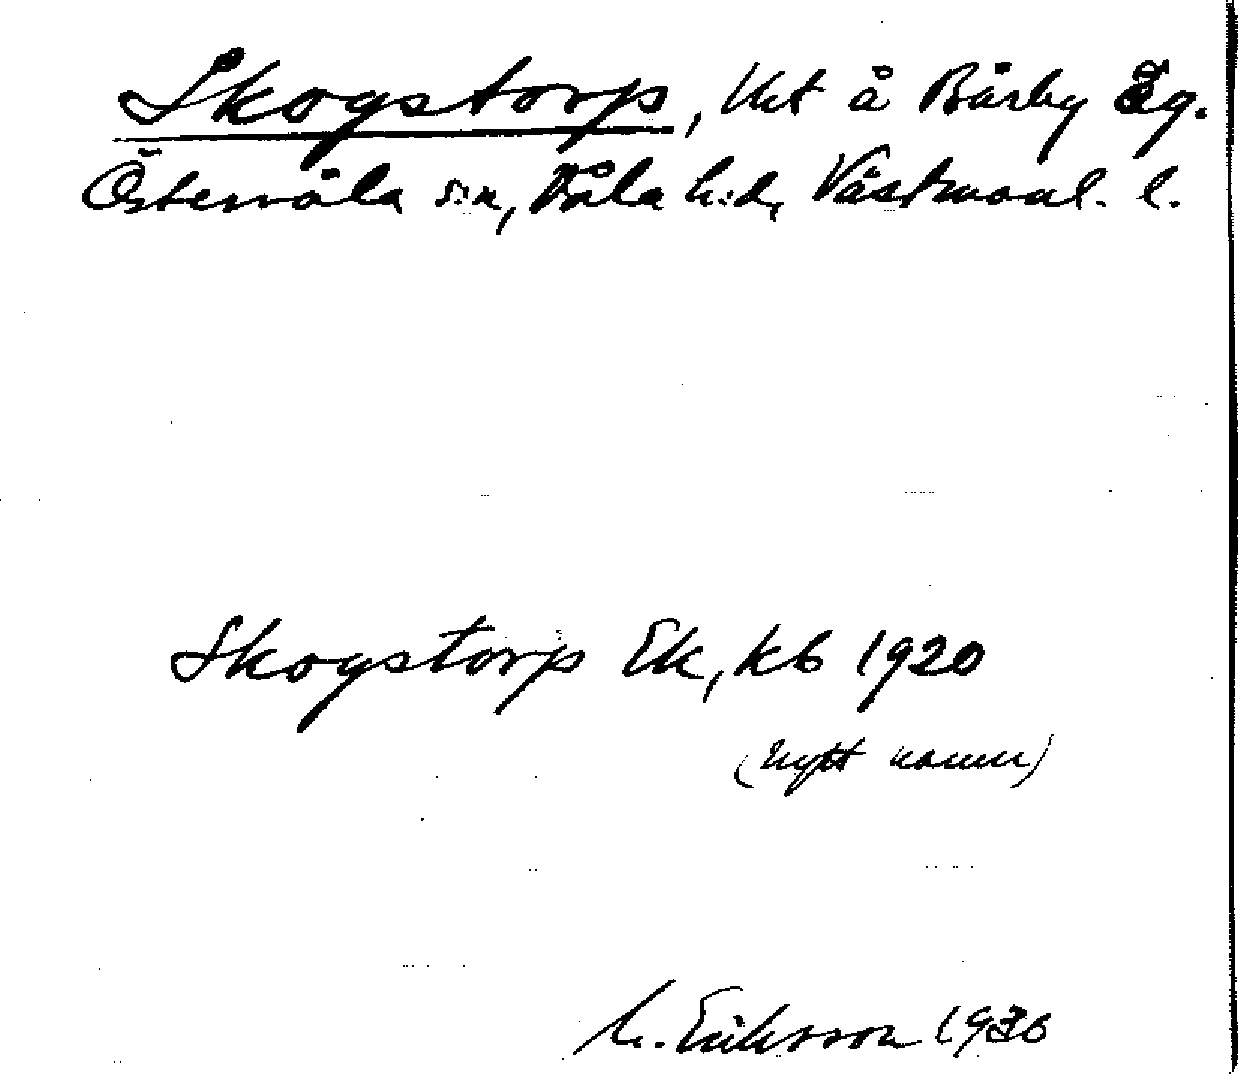 Skogstorp, Ut å Bärby Äg.
Östervåla s:n, Våla h:d, Västmanl. l.
Skogstorp Ek, kb 1920
(nytt namn)
M. Eriksson 1936